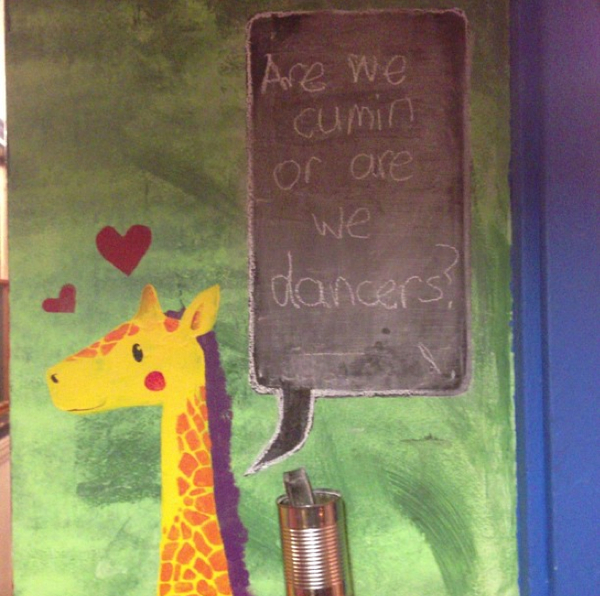 Are we
cumin
or are
we
dancers?